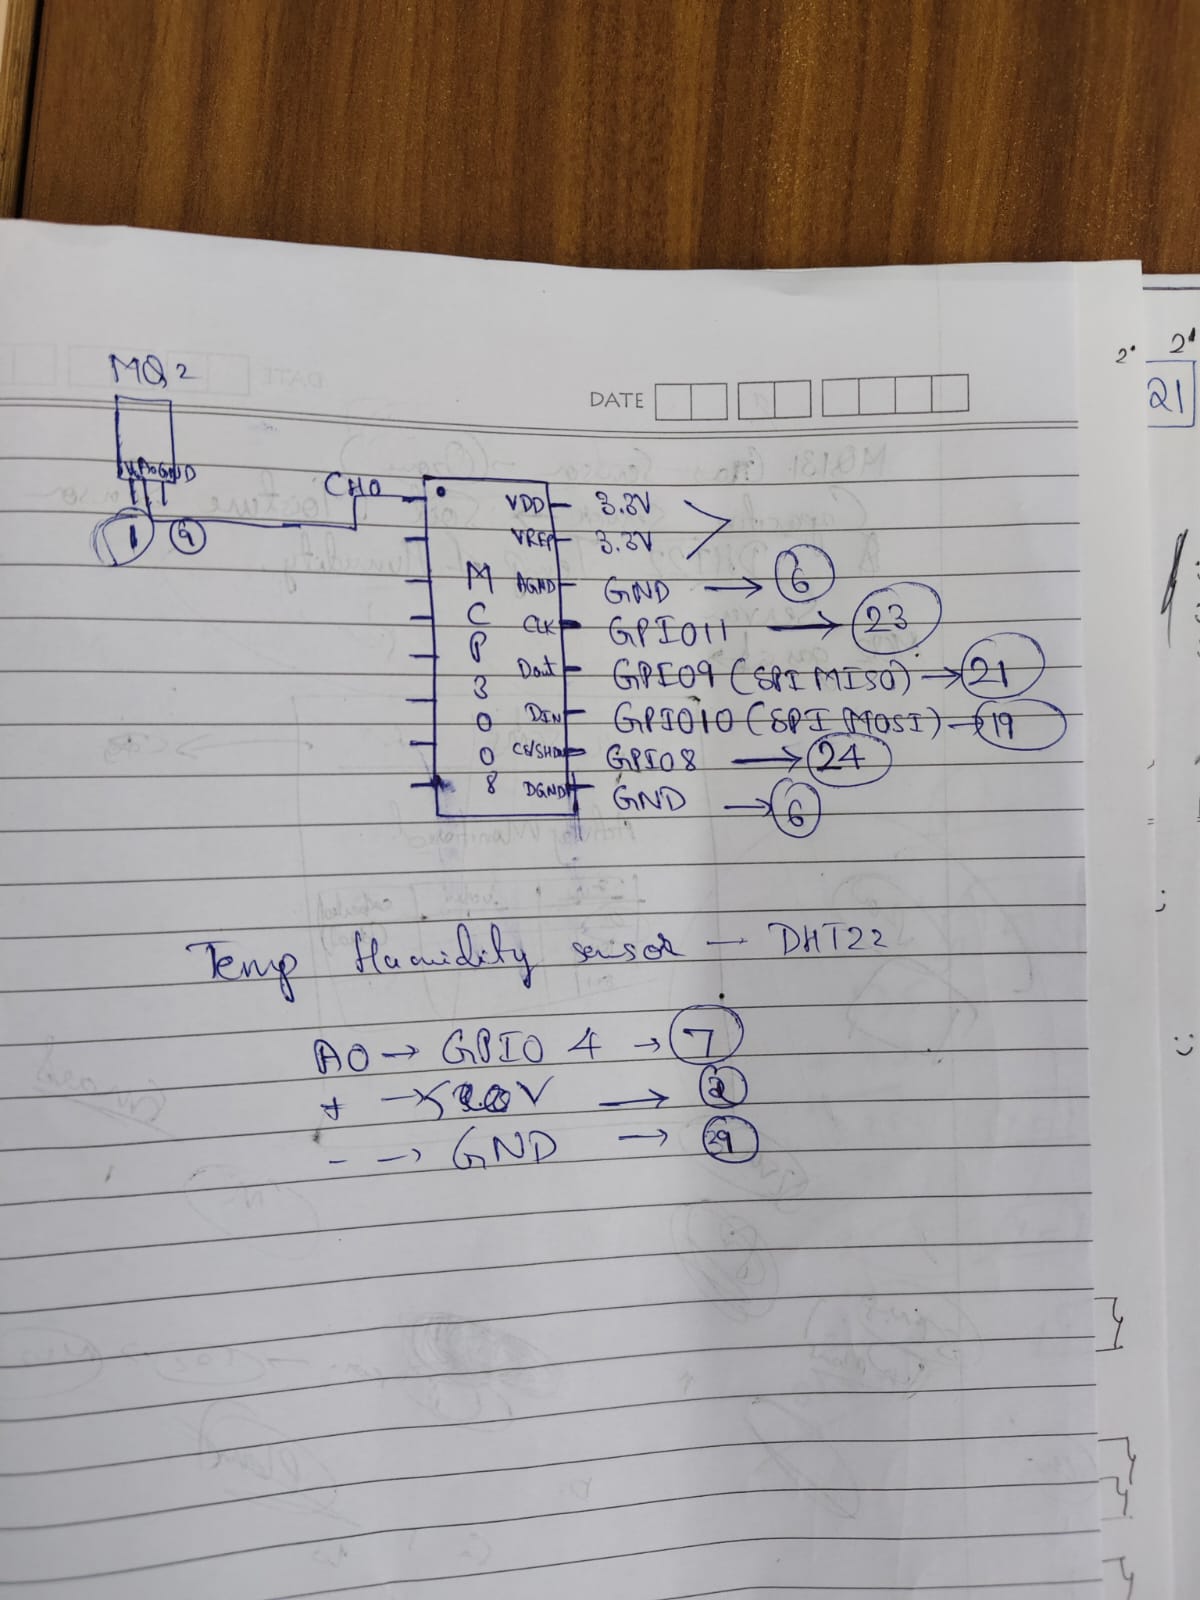 MQ2
DATE
21
V A0 GND
1 9
CH0
VDD 3.3V
VREF 3.3V
AGND GND → 6
CLK GPIO11 → 23
Dout GPIO9 (SPI MISO) → 21
DIN GPIO10 (SPI MOSI) → 19
CS/SHDN GPIO8 → 24
DGND GND → 6
MCP3008
Temp Humidity sensor — DHT22
A0 → GPIO 4 → 7
+ → V → 2
- → GND → 29